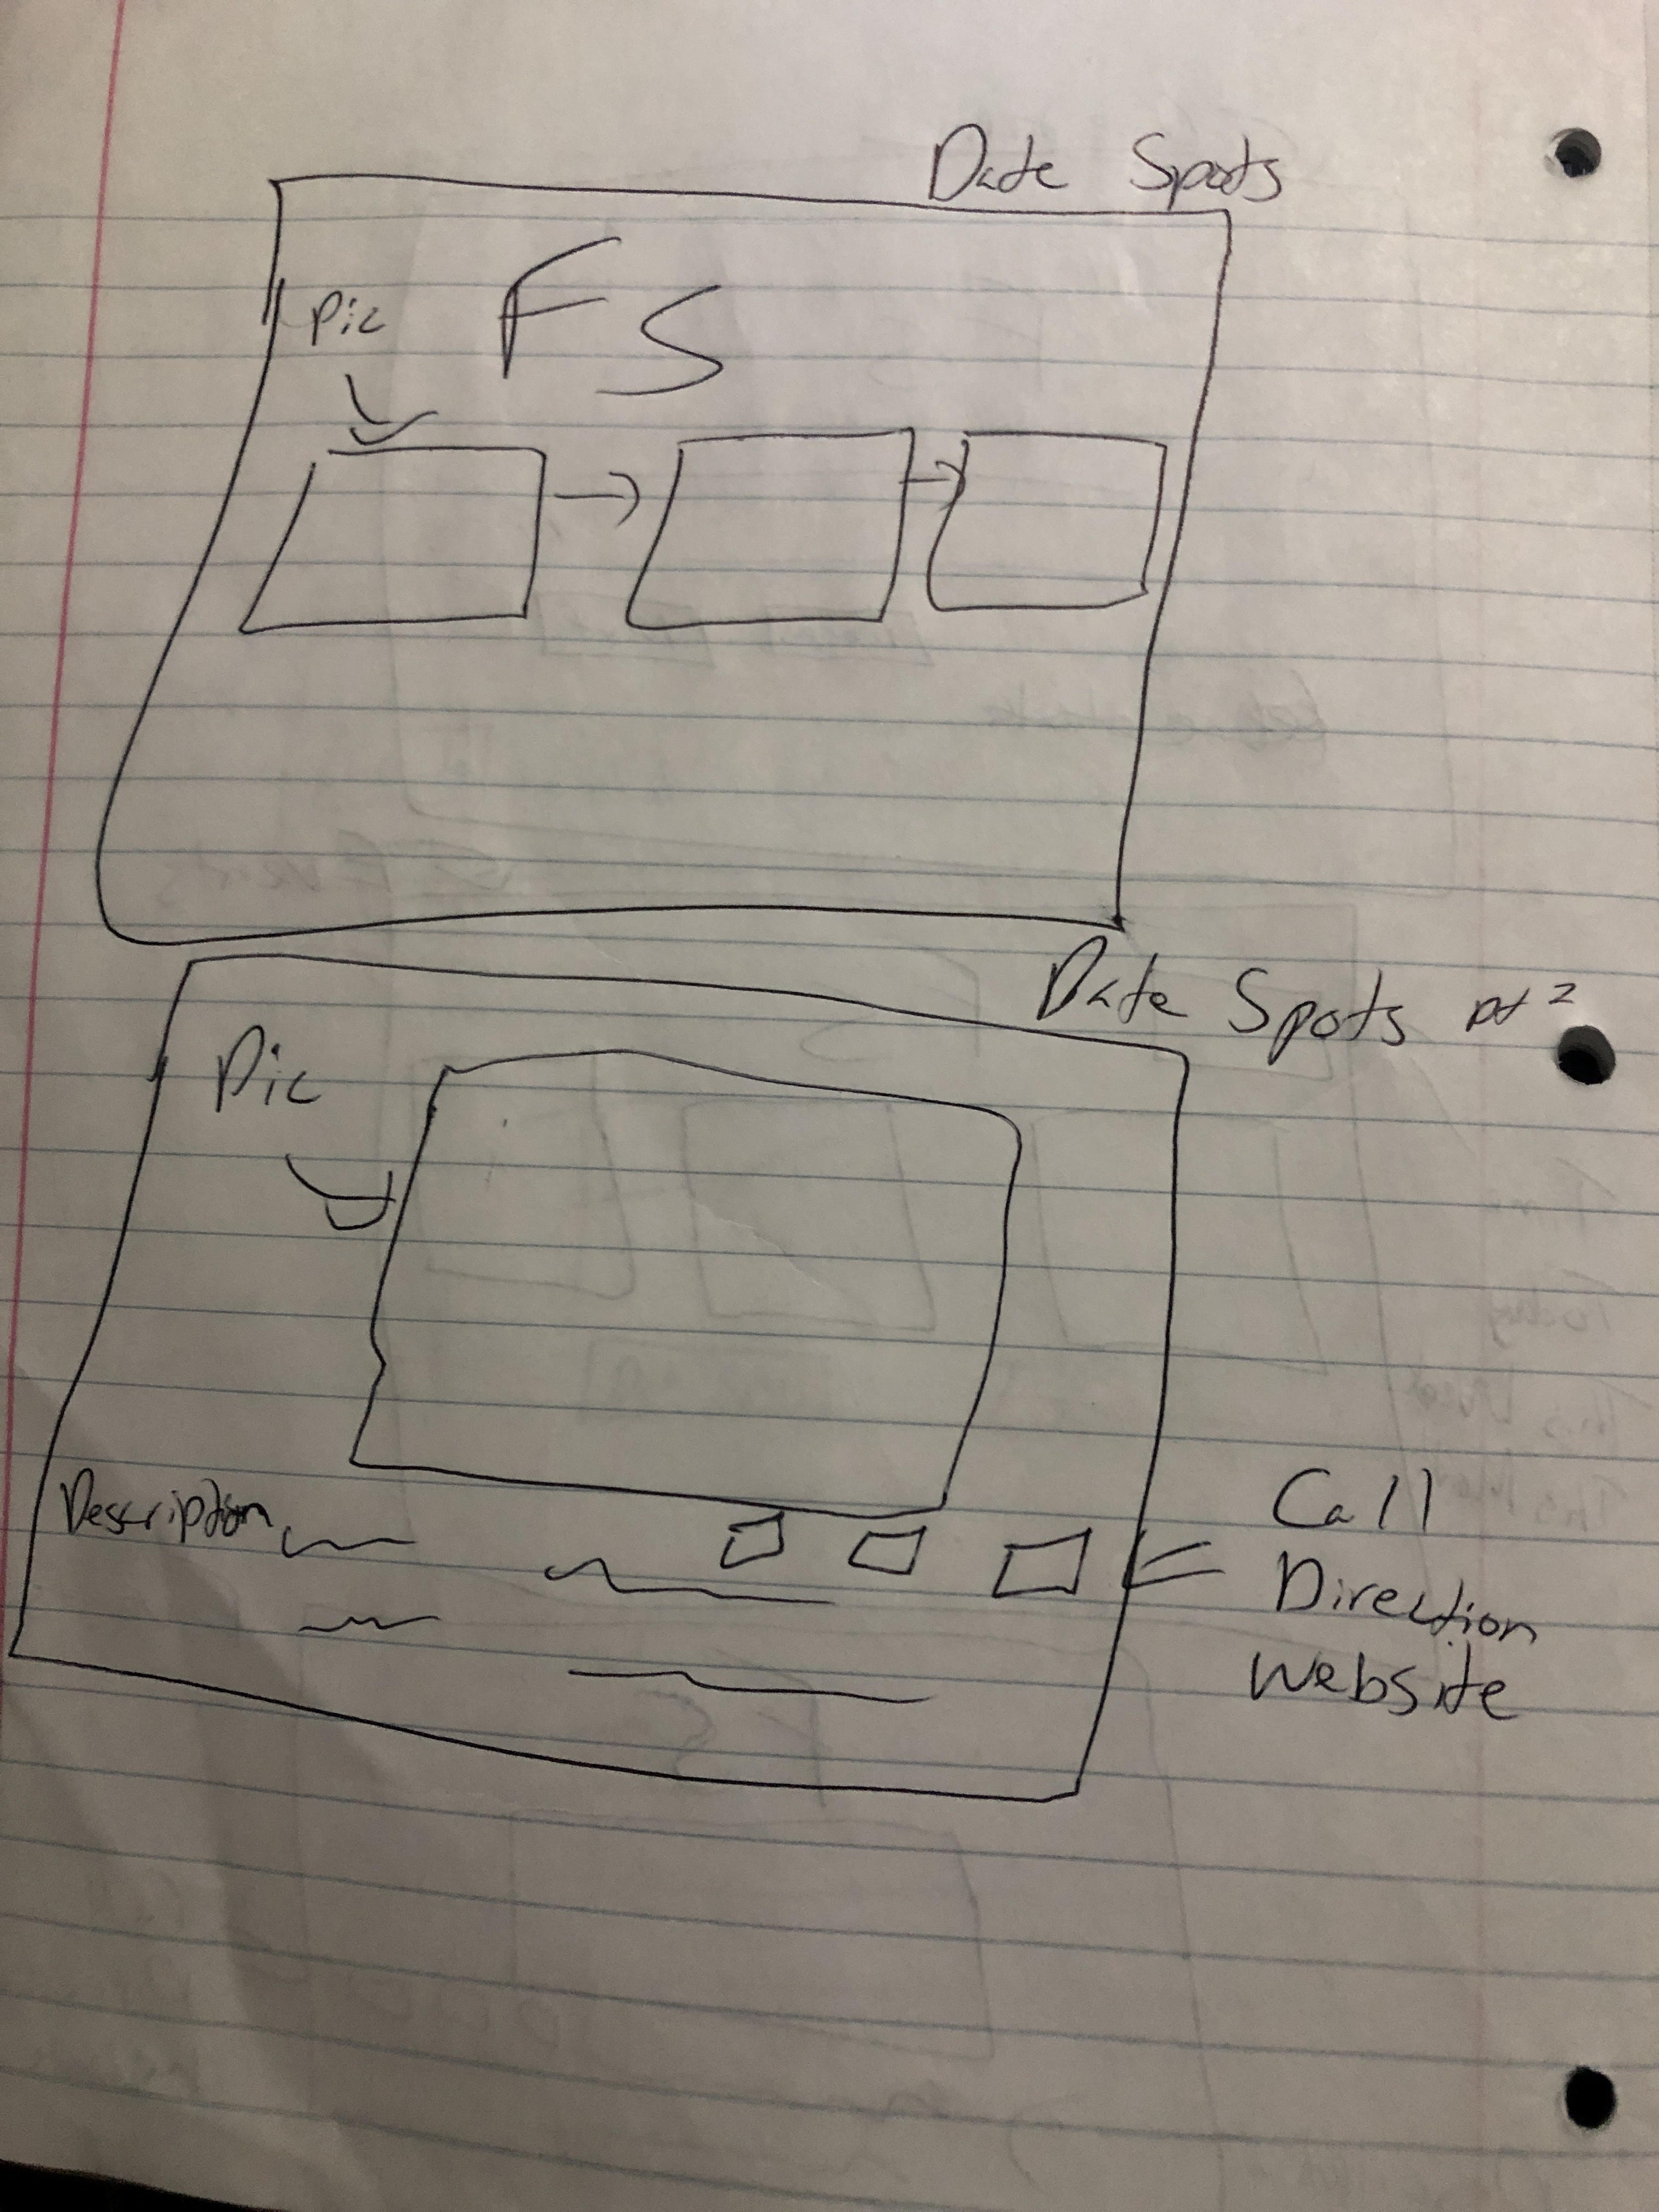 Date Spots
Pic
FS
Date Spots pt 2
Pic
Description
Call
Direction
Website